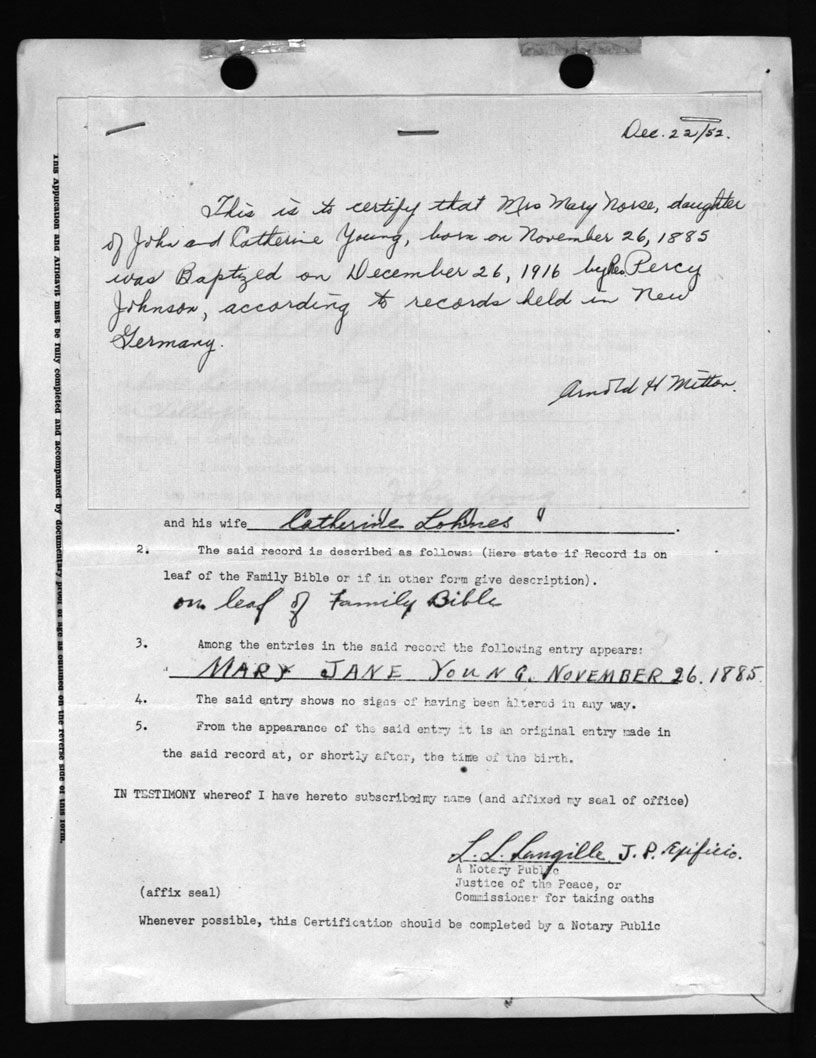 Dec. 22/52.
This is to certify that Mrs Mary Norse, daughter
of John and Catherine Young, born on November 26, 1885
was Baptized on December 26, 1916 by Rev. Percy
Johnson, according to records held in New
Germany.
Arnold H Mitton.
John Young
and his wife Catherine Lohnes.
2. The said record is described as follows: (Here state if Record is on
leaf of the Family Bible or if in other form give description).
on leaf of Family Bible
3. Among the entries in the said record the following entry appears:
MARY JANE YOUNG. NOVEMBER 26. 1885.
4. The said entry shows no signs of having been altered in any way.
5. From the appearance of the said entry it is an original entry made in
the said record at, or shortly after, the time of the birth.
IN TESTIMONY whereof I have hereto subscribed my name (and affixed my seal of office)
L. L. Langille J. P.
A Notary Public
Justice of the Peace, or
Commissioner for taking oaths
(affix seal)
Whenever possible, this Certification should be completed by a Notary Public
This Application and Affidavit must be fully completed and accompanied by documentary proof of age as outlined on the reverse side of this form.